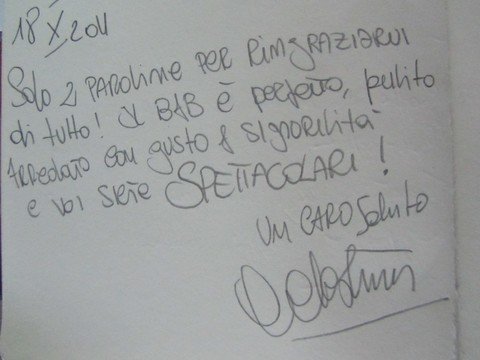 18 X 2011
Solo 2 PAROLINE PER RINGRAZIARVI
di tutto! il B&B è perfetto, pulito
ARREDATO con gusto & signorilità
e voi siete SPETTACOLARI!
UN CARO Saluto